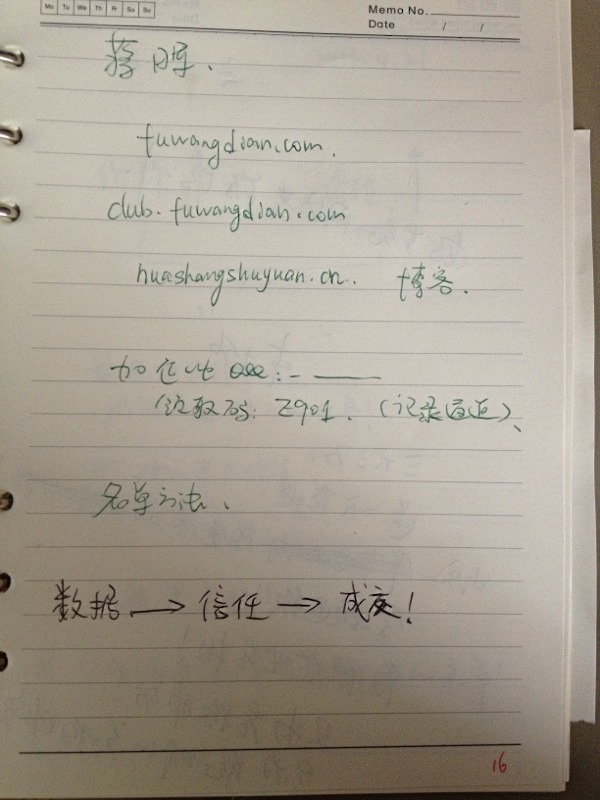 Mo Tu We Th Fr Sa Su
Memo No.
Date / /
蒋晖.
fuwangdian.com.
club.fuwangdian.com
huashangshuyuan.cn. 博客.
加在此 QQ:
领取码: Z901. (记录通道)、
名单方法、
数据 → 信任 → 成交!
16